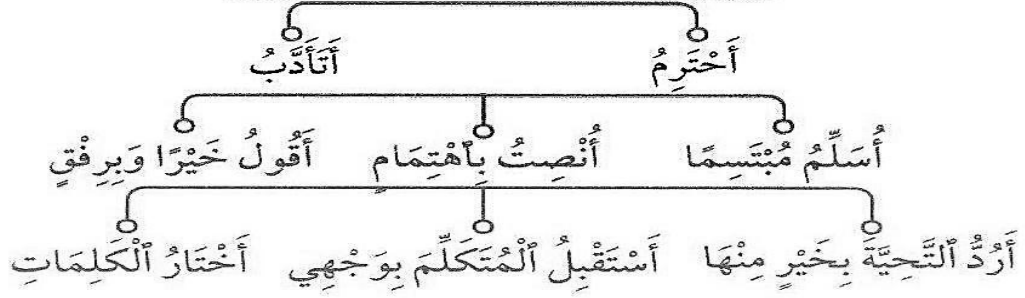 أَحْتَرِمُ أَتَأَدَّبُ
أُسَلِّمُ مُبْتَسِمًا أُنْصِتُ بِٱهْتِمَامٍ أَقُولُ خَيْرًا وَبِرِفْقٍ
أَرُدُّ ٱلتَّحِيَّةَ بِخَيْرٍ مِنْهَا أَسْتَقْبِلُ ٱلْمُتَكَلِّمَ بِوَجْهِي أَخْتَارُ ٱلْكَلِمَاتِ